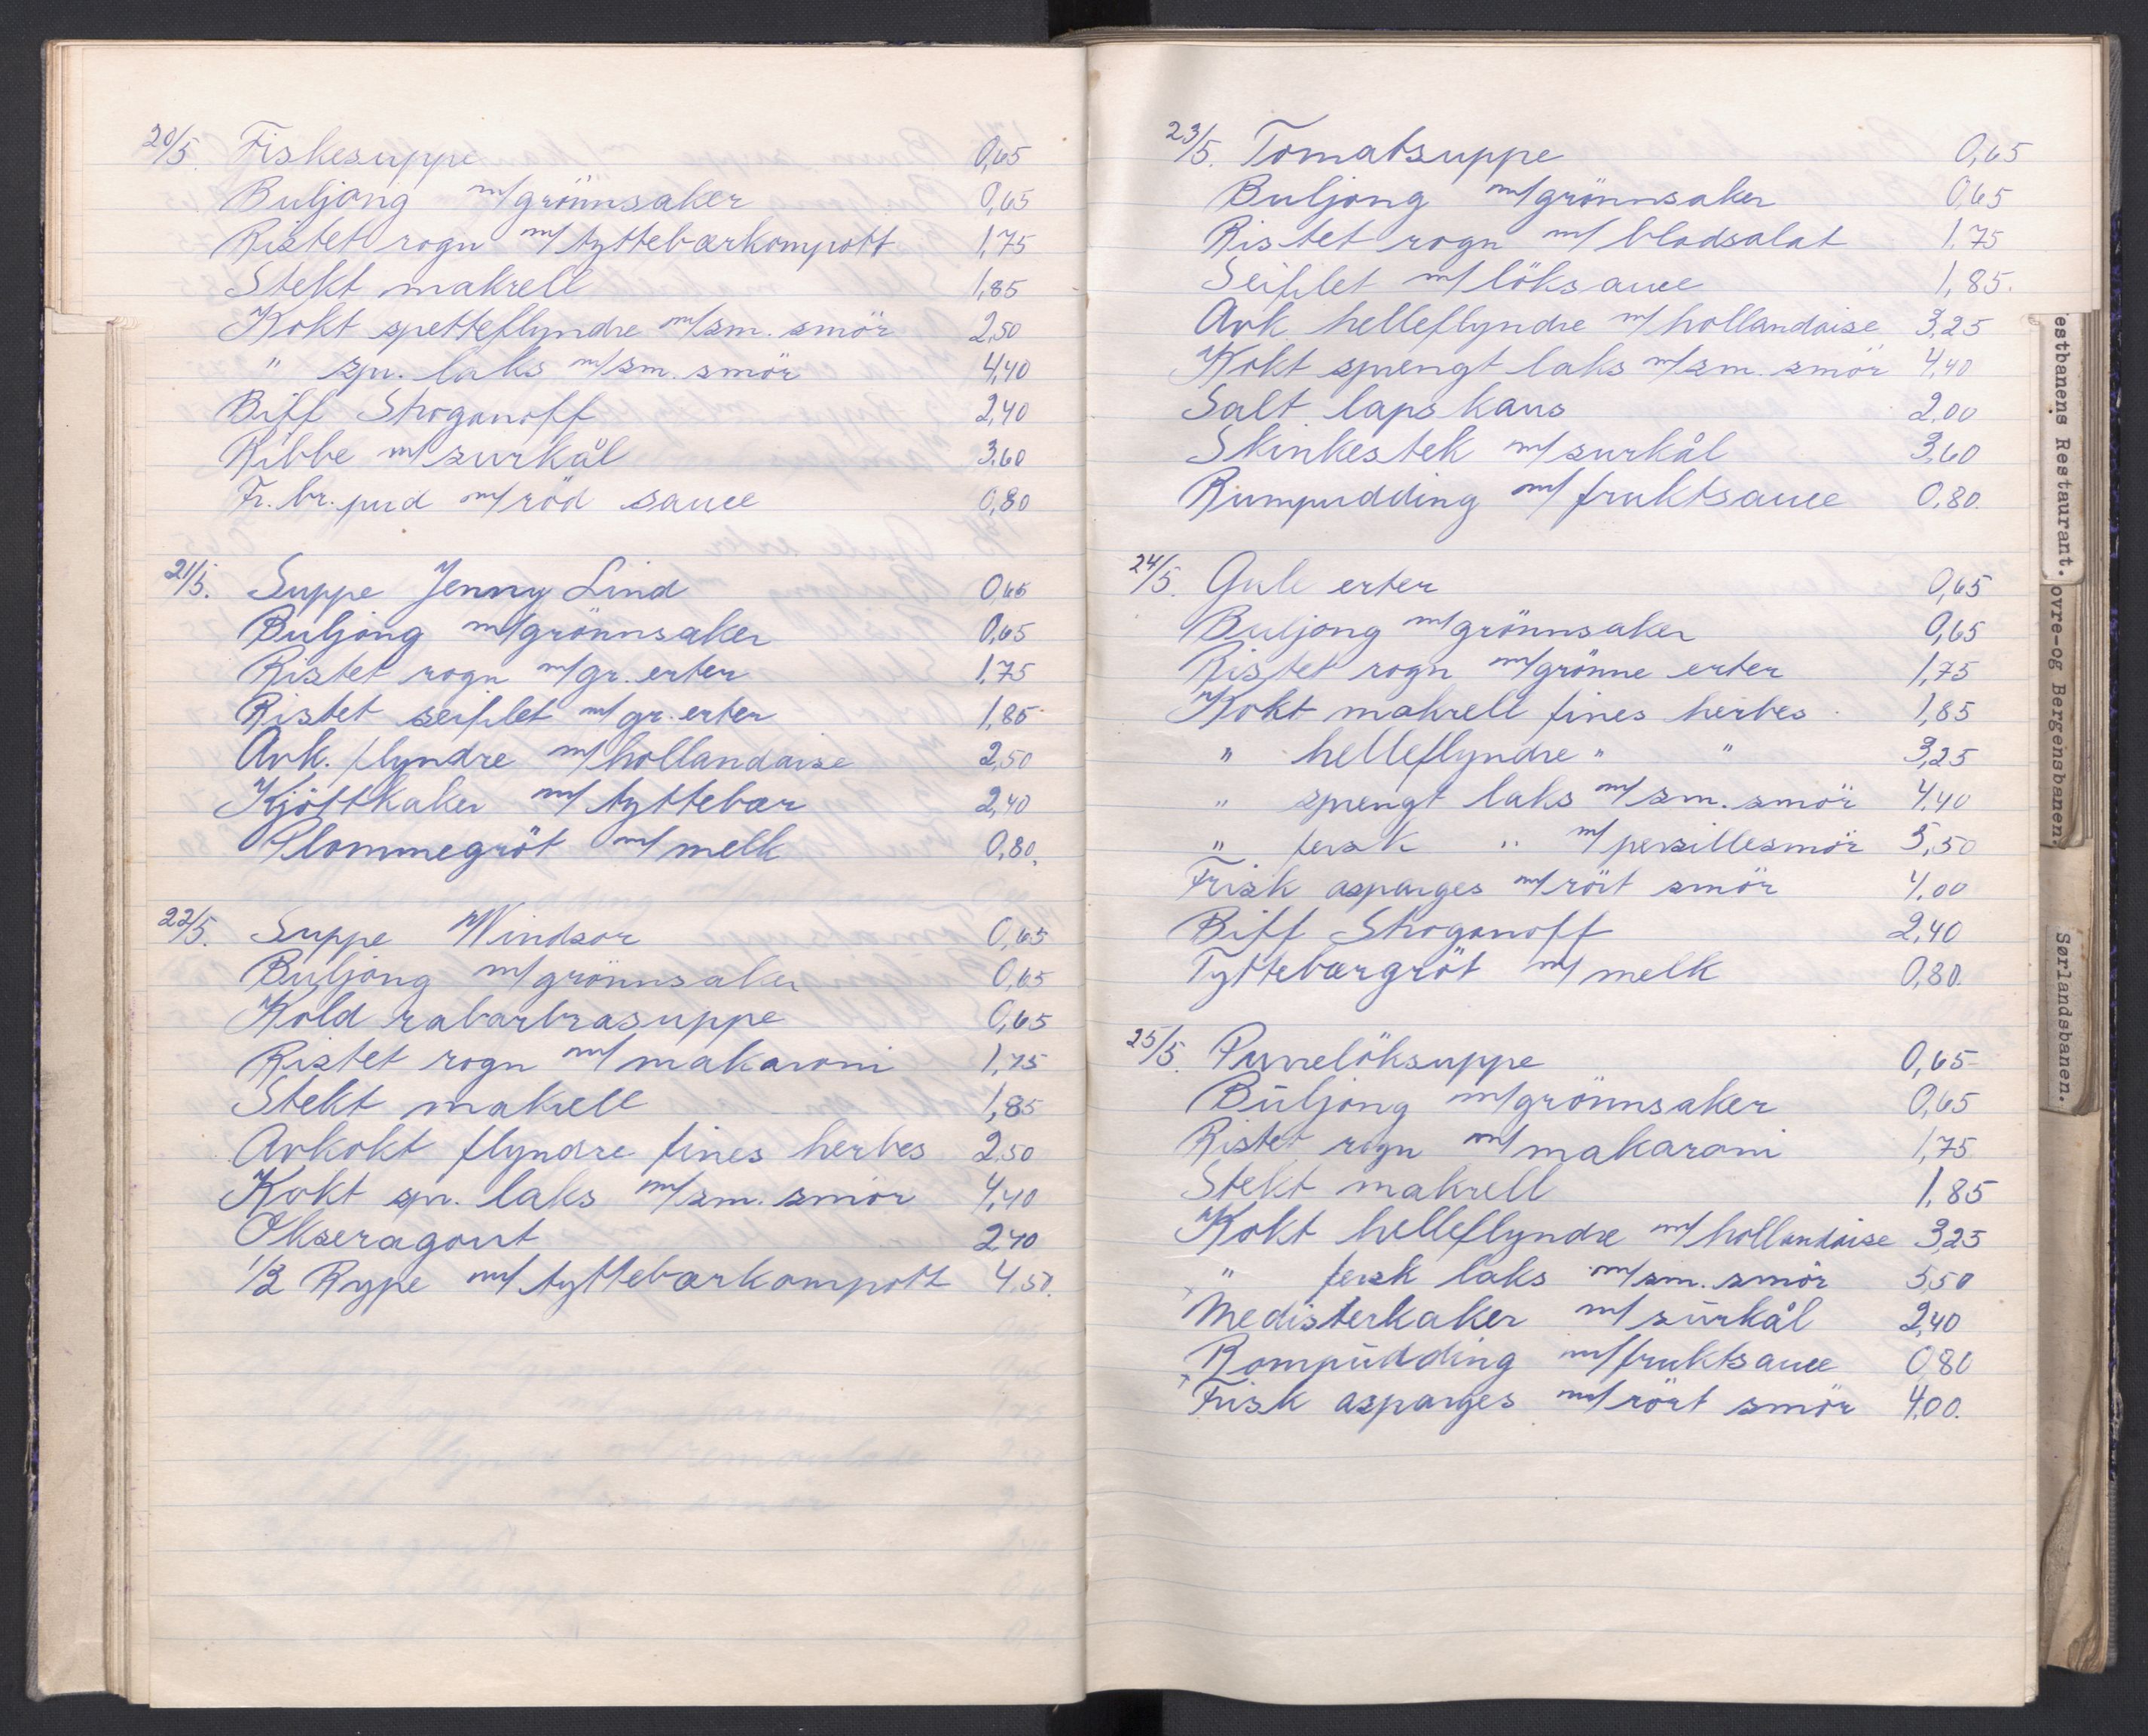 20/5. Fiskesuppe 0,65
Buljong m/grönnsaker 0,65
Ristet rogn m/tyttebærkompott 1,75
Stekt makrell 1,85
Kokt spetteflyndre m/sm. smör 2,50
" spr. laks m/sm. smör 4,40
Biff Stroganoff 2,40
Ribbe m/surkål 3.60
Fr. br. pud m/röd sauce 0,80
21/5. Suppe Jenny Lind 0,65
Buljong m/grönnsaker 0,65
Ristet rogn m/gr. erter 1.75
Ristet seifilet m/gr. erter 1,85
Avk. flyndre m/hollandaise 2,50
Kjöttkaker m/tyttebær 2,40
Plommegröt m/melk 0,80.
22/5. Suppe Windsor 0,65
Buljong m/grönnsaker 0,65
Kold rabarbrasuppe 0,65
Ristet rogn m/makaroni 1,75
Stekt makrell 1,85
Avkokt flyndre fines herbes 2.50
Kokt spr. laks m/sm. smör 4,40
Okseragout 2.40
1/2 Rype m/tyttebærkompott 4.50.
23/5. Tomatsuppe 0,65
Buljong m/grönnsaker 0,65
Ristet rogn m/bladsalat 1.75
Seifilet m/löksauce 1,85.
Avk. helleflyndre m/hollandaise 3,25
Kokt sprengt laks m/sm. smör 4,40
Salt lapskaus 2.00
Skinkestek m/surkål 3,60
Rumpudding m/fruktsauce 0.80.
24/5. Gule erter 0,65
Buljong m/grönnsaker 0,65
Ristet rogn m/grönne erter 1,75
Kokt makrell fines herbes 1,85
" helleflyndre " " 3,25
" sprengt laks m/sm. smör 4.40
" fersk " m/persillesmör 5,50
Frisk asparges m/rört smör 4.00
Biff Stroganoff 2,40
Tyttebærgröt m/melk 0,80.
25/5. Purrelöksuppe 0,65
Buljong m/grönnsaker 0,65
Ristet rogn m/makaroni 1,75
Stekt makrell 1,85
Kokt helleflyndre m/hollandaise 3,25
" fersk laks m/sm. smör 5,50
Medisterkaker m/surkål 2,40
Rompudding m/fruktsauce 0,80
Frisk asparges m/rört smör 4,00.
estbanens Restaurant.
ovre-og Bergensbanen.
Sørlandsbanen.